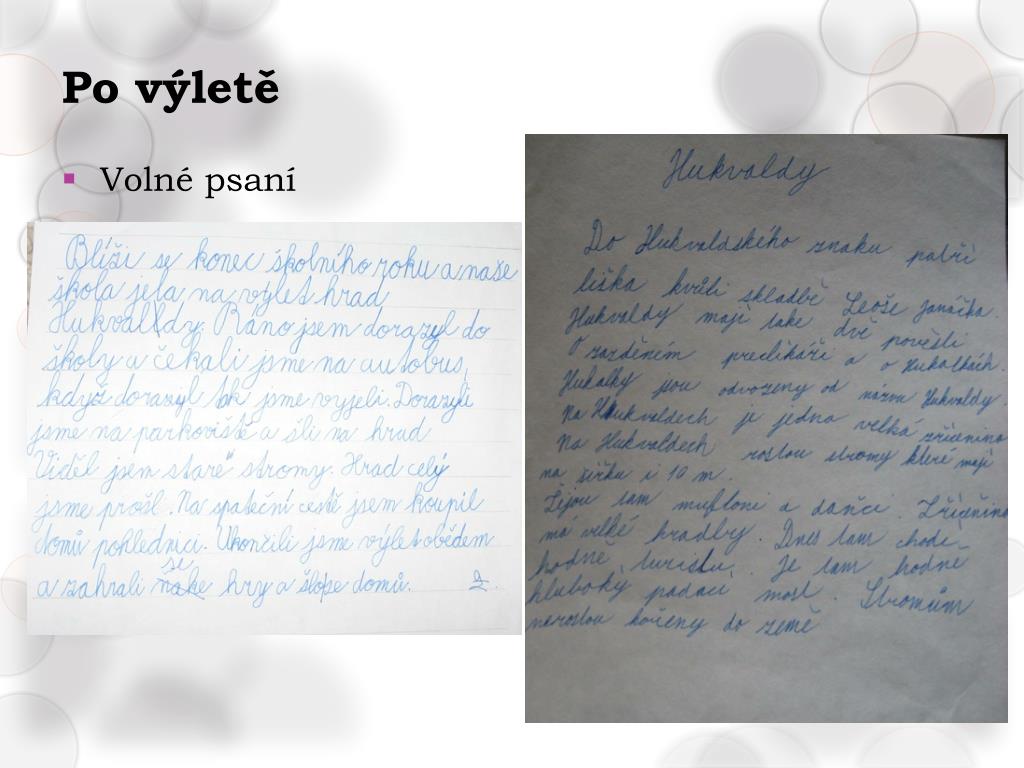 Po výletě
Volné psaní
Blíži se konec školního roku a naše
škola jela na výlet hrad
Hukvaldy. Ráno jsem dorazyl do
školy a čekali jsme na autobus,
když dorazyl tak jsme vyjeli. Dorazyli
jsme na parkoviště a šli na hrad
Viděl jsem staré stromy. Hrad celý
jsme prošl. Na spateční cestě jsem koupil
domů pohlednici. Ukončili jsme výlet obědem
se
a zahrali hry a šlope domů. 2.
Hukvaldy
Do Hukvaldského znaku patří
liška kvůli skladbě Leoše Janáčka.
Hukvaldy mají take dvě pověsti
O zazděném preclikáři a o Hukalkách.
Hukalky jsou odvozeny od názvu Hukvaldy.
Na Hukvaldech je jedna velká zřícenina
Na Hukvaldech rostou stromy které mají
na šířku i 10 m.
Žijou tam mufloni a daňci. Zřícenina
má velké hradby. Dnes tam chodí
hodně turistu. Je tam hodně
hluboký padací most. Stromům
nerostou kořeny do země